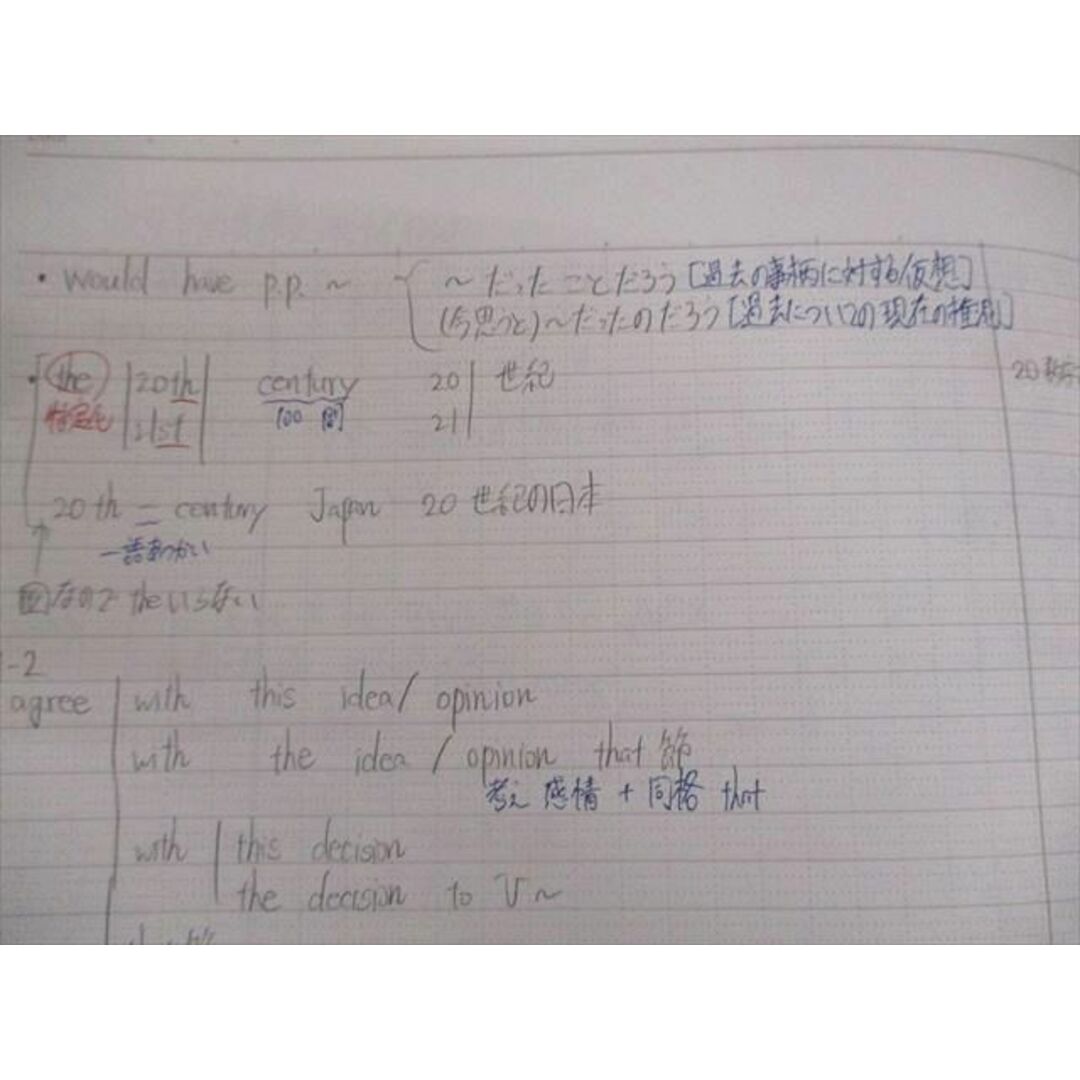 ・would have p.p. ~ { ~だったことだろう[過去の事柄に対する仮想]
(今思うと)~だったのだろう[過去についての現在の推測]
・the 20th century 20 世紀
特定化 21st 100年間 21
20th-century Japan 20世紀の日本
一語あつかい
なので theいらない
-2
agree with this idea/ opinion
with the idea / opinion that 節
考え 感情 + 同格 that
with this decision
the decision to V~